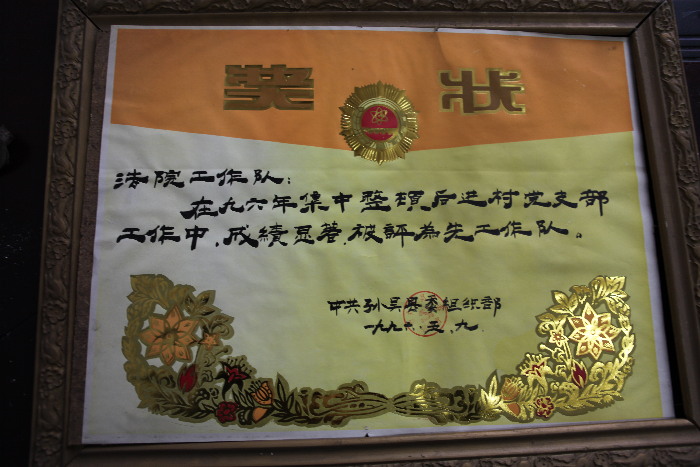 奖状
法院工作队：
在九六年集中整顿后进村党支部
工作中，成績显著，被評為先工作队。
中共孙吴县委组织部
一九九六.五.九.